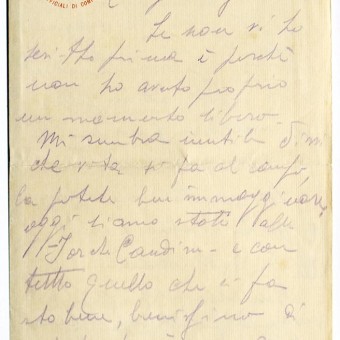 FFICIALI DI COM
Se non vi ho
scritto prima è perchè
non ho avuto proprio
un momento libero.
Mi sembra inutile dirvi
che vita si fa al campo,
la potete ben immaginare,
oggi siamo stati alle
Caudine e con
tutto quello che si fa
sto bene, benissimo di